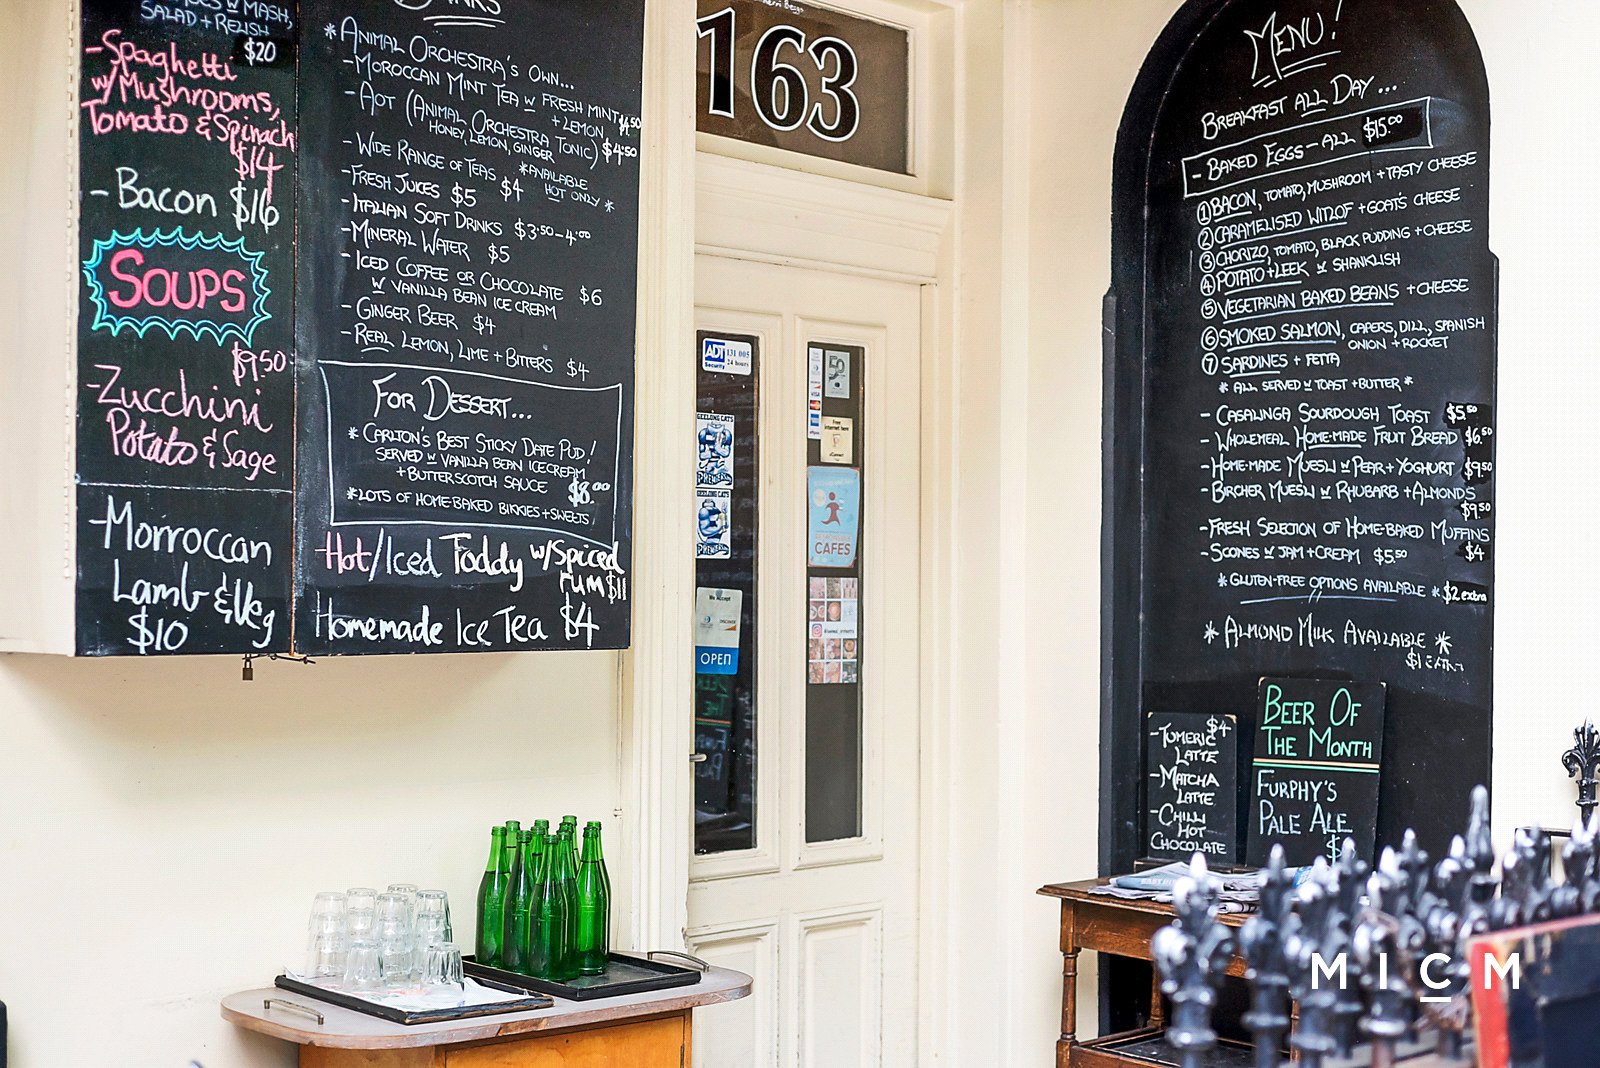 W MASH,
SALAD + RELISH
$20
- Spaghetti
w/ Mushrooms,
Tomato & Spinach
$14
- Bacon $16
SOUPS
$9.50
- Zucchini
Potato & Sage
- Morroccan
Lamb & Veg
$10
DRINKS
* ANIMAL ORCHESTRA'S OWN...
- MOROCCAN MINT TEA W FRESH MINT
+ LEMON $4.50
- AOT (ANIMAL ORCHESTRA TONIC) $4.50
HONEY, LEMON, GINGER
- WIDE RANGE OF TEAS $4
* AVAILABLE
HOT ONLY *
- FRESH JUICES $5
- ITALIAN SOFT DRINKS $3.50-4.00
- MINERAL WATER $5
- ICED COFFEE OR CHOCOLATE $6
W VANILLA BEAN ICE CREAM
- GINGER BEER $4
- REAL LEMON, LIME + BITTERS $4
FOR DESSERT...
* CARLTON'S BEST STICKY DATE PUD!
SERVED W VANILLA BEAN ICECREAM
+ BUTTERSCOTCH SAUCE $8.00
* LOTS OF HOME-BAKED BIKKIES + SWEETS
Hot/Iced Toddy w/Spiced
rum $11
Homemade Ice Tea $4
163
ADT 131 005
Security 24 hours
GEELONG CATS
PREMIERS
GEELONG CATS
PREMIERS
We Accept
DISCOVER
OPEN
VISA
Free
internet here
CAFES
MENU!
BREAKFAST ALL DAY...
- BAKED EGGS - ALL $15.00
1 BACON, TOMATO, MUSHROOM + TASTY CHEESE
2 CARAMELISED WITLOF + GOAT'S CHEESE
3 CHORIZO, TOMATO, BLACK PUDDING + CHEESE
4 POTATO + LEEK W SHANKLISH
5 VEGETARIAN BAKED BEANS + CHEESE
6 SMOKED SALMON, CAPERS, DILL, SPANISH
ONION + ROCKET
7 SARDINES + FETTA
* ALL SERVED W TOAST + BUTTER *
- CASALINGA SOURDOUGH TOAST $5.50
- WHOLEMEAL HOME-MADE FRUIT BREAD $6.50
- HOME-MADE MUESLI W PEAR + YOGHURT $9.50
- BIRCHER MUESLI W RHUBARB + ALMONDS
$9.50
- FRESH SELECTION OF HOME-BAKED MUFFINS
$4
- SCONES W JAM + CREAM $5.50
* GLUTEN-FREE OPTIONS AVAILABLE * $2 extra
* ALMOND MILK AVAILABLE *
$1 EXTRA
$4
- TUMERIC
LATTE
- MATCHA
LATTE
- CHILLI
HOT
CHOCOLATE
BEER OF
THE MONTH
FURPHY'S
PALE ALE
MICM